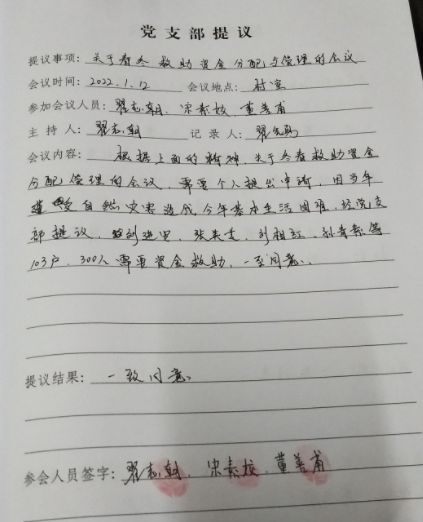 党支部提议
提议事项：关于春冬救助资金分配与管理的会议
会议时间：2022.1.12 会议地点：村室
参加会议人员：翟志朝 宋秀枝 董善甫
主 持 人：翟志朝 记 录 人：翟
会议内容：根据上面的精神，关于冬春救助资金
分配管理的会议，需要个人提出申请，因当年
自然灾害造成今年基本生活困难，经党支
部提议，刘进军、张、刘相红、孙等
103户，300人需要资金救助，一至同意。
提议结果：一致同意
参会人员签字：翟志朝 宋秀枝 董善甫